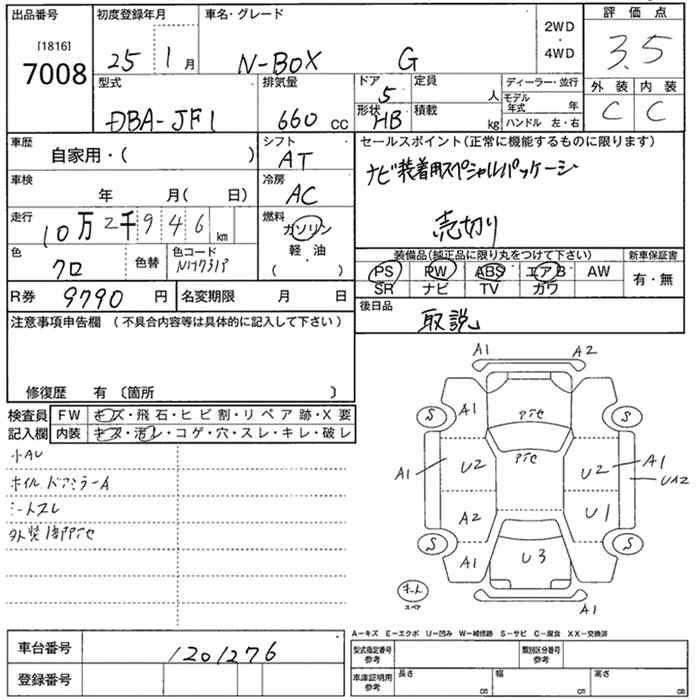 出品番号 初度登録年月 車名・グレード 2WD ・ 4WD 評価点
[1816]
7008 25 1月 N-BOX G 3.5
型式 排気量 ドア 定員 ディーラー・並行 外装 内装
DBA-JF1 660 cc 5 人 モデル年式 年 C C
形状 HB 積載 kg ハンドル 左・右
車歴 自家用・( ) シフト AT セールスポイント(正常に機能するものに限ります)
車検 年 月( 日) 冷房 AC ナビ装着用スペシャルパッケージ
走行 10万2千946 km 燃料 ガソリン 売切り
軽油
( ・ )
色 クロ 色替 色コード NH731P 装備品(純正品に限り丸をつけて下さい) 新車保証書
PS PW ABS エアB AW 有・無
SR ナビ TV カワ
R券 9790 円 名変期限 月 日 後日品
取説
注意事項申告欄 (不具合内容等は具体的に記入して下さい)
修復歴 有 〔箇所 〕
検査員 FW キズ・飛石・ヒビ割・リペア跡・X要
記入欄 内装 キズ・汚レ・コゲ・穴・スレ・キレ・破レ
小AU
ホイル ドアミラーA
シートスレ
外装1部PTC
A1 A2
S A1 PTC S
PTC
A1 U2 U2 A1
UA2
A2 U1
S A1 U3 S
A1
スペア
A-キズ E-エクボ U-凹み W-補修跡 S-サビ C-腐食 XX-交換済
車台番号 1201276 型式指定番号 参考 類別区分番号 参考
登録番号 車庫証明用 参考 長さ cm 幅 cm 高さ cm